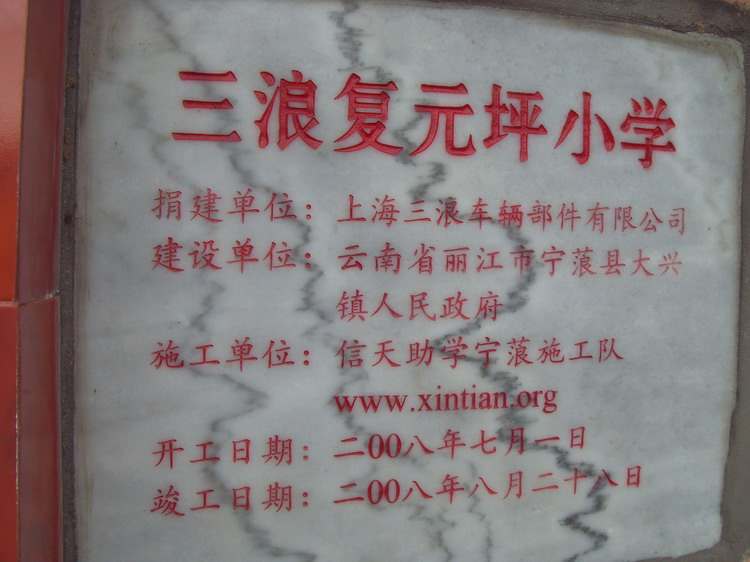 三浪复元坪小学
捐建单位：上海三浪车辆部件有限公司
建设单位：云南省丽江市宁蒗县大兴
镇人民政府
施工单位：信天助学宁蒗施工队
www.xintian.org
开工日期：二00八年七月一日
竣工日期：二00八年八月二十八日